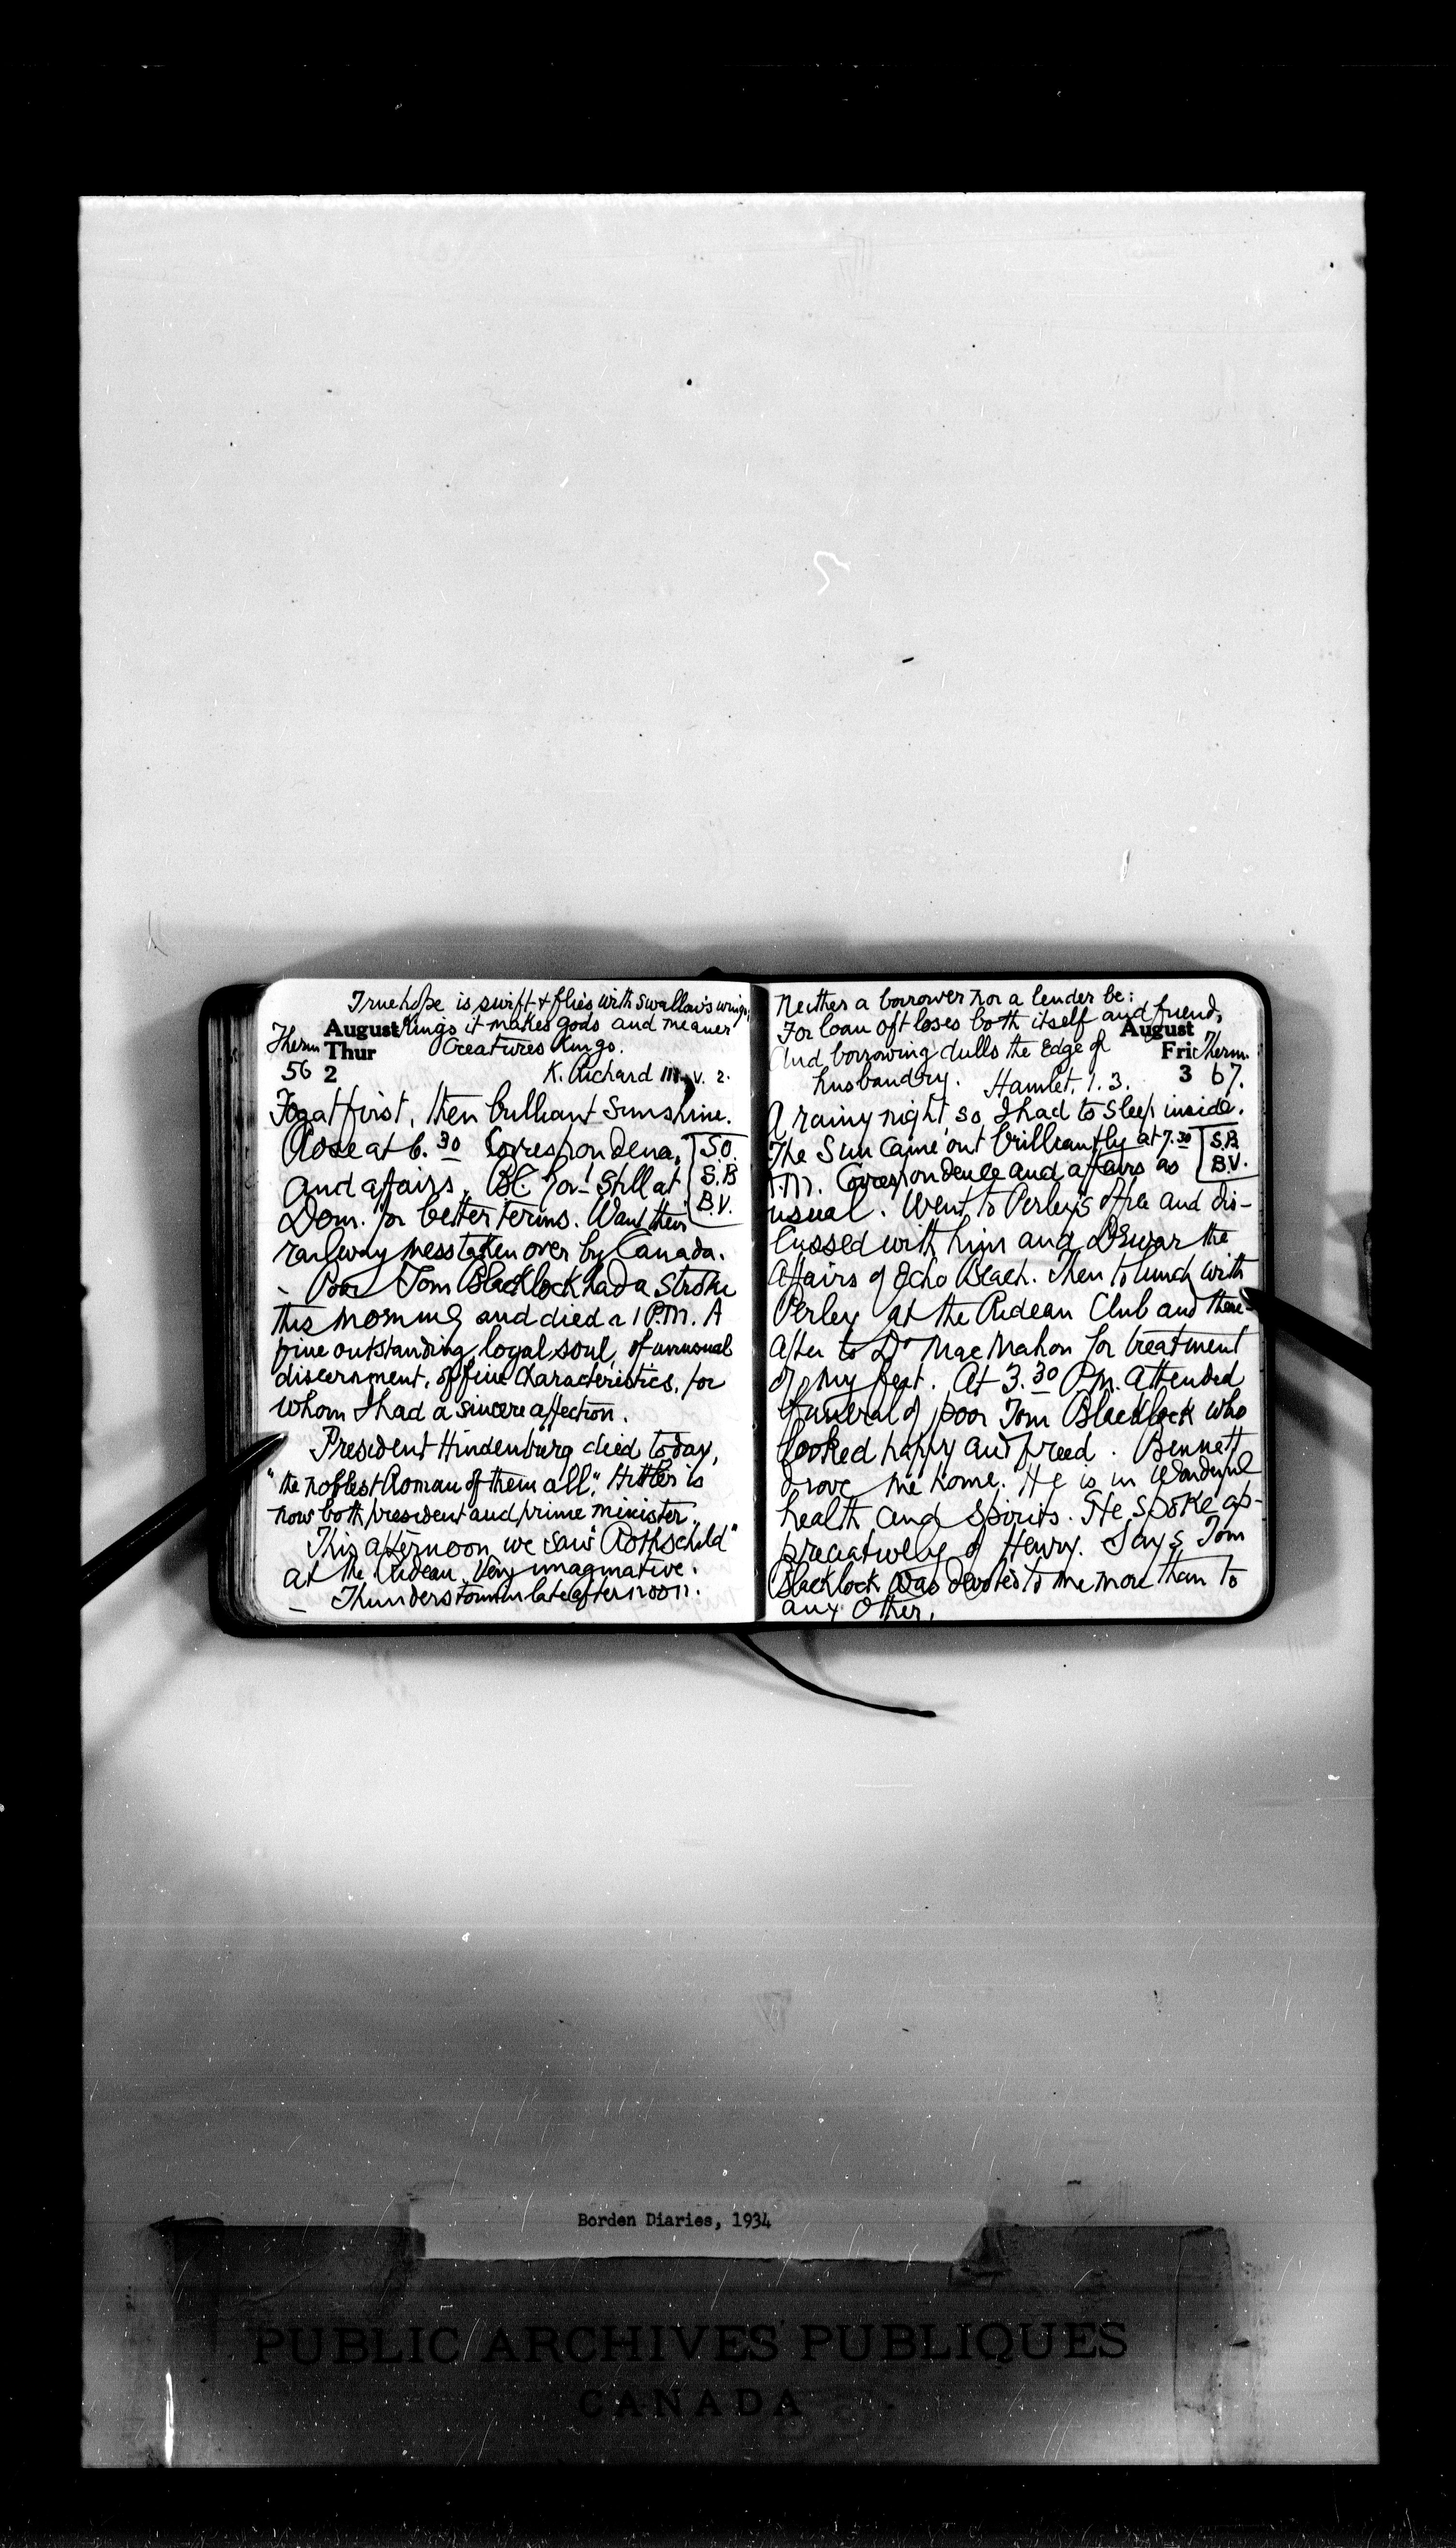 True hope is swift & flies with swallow's wings,
Kings it makes gods and meaner
Creatures Kings.
K. Richard III, v. 2.
Therm
56
August
Thur
2
Fog at first, then brilliant Sunshine.
Rose at 6.30 Correspondence,
and affairs. B.C. Gov't Still at
S.O.
S.B
B.V.
Dom. for better terms. Want their
railway mess taken over by Canada.
- Poor Tom Blacklock had a Stroke
this morning and died at 1 P.M. A
fine outstanding, loyal soul, of unusual
discernment, of fine Characteristics, for
whom I had a sincere affection.
President Hindenburg died today,
"the noblest Roman of them all". Hitler is
now both president and prime minister.
This afternoon we saw "Rothschild"
at the Rideau. Very imaginative.
- Thunderstorm in late afternoon.
Neither a borrower nor a lender be:
For loan oft loses both itself and friend,
And borrowing dulls the Edge of
husbandry. Hamlet, 1. 3.
August
Fri
3
Therm.
67.
A rainy night, so I had to sleep inside.
The Sun came out brilliantly at 7.30
S.B.
B.V.
A.M. Correspondence and affairs as
usual. Went to Perley's office and dis-
cussed with him and Dewar the
Affairs of Echo Beach. Then to lunch with
Perley at the Rideau Club and there-
after to Dr MacMahon for treatment
of my feet. At 3.30 P.m. attended
funeral of poor Tom Blacklock who
looked happy and freed. Bennett
drove me home. He is in wonderful
health and spirits. He spoke ap-
preciatively of Henry. Says Tom
Blacklock was devoted to me more than to
any Other.
Borden Diaries, 1934
PUBLIC ARCHIVES PUBLIQUES
CANADA